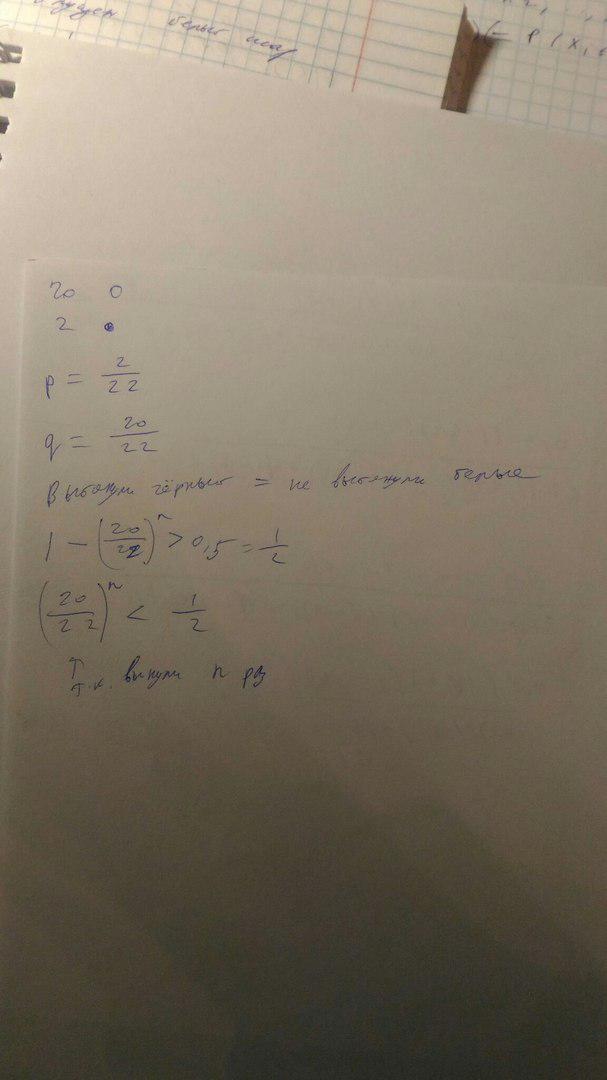 белый шар
20 0
2 •
p = 2/22
q = 20/22
Вытянули чёрный = не вытянули белые
1 - (20/22)^n > 0,5 = 1/2
(20/22)^n < 1/2
т.к. вынули n рз